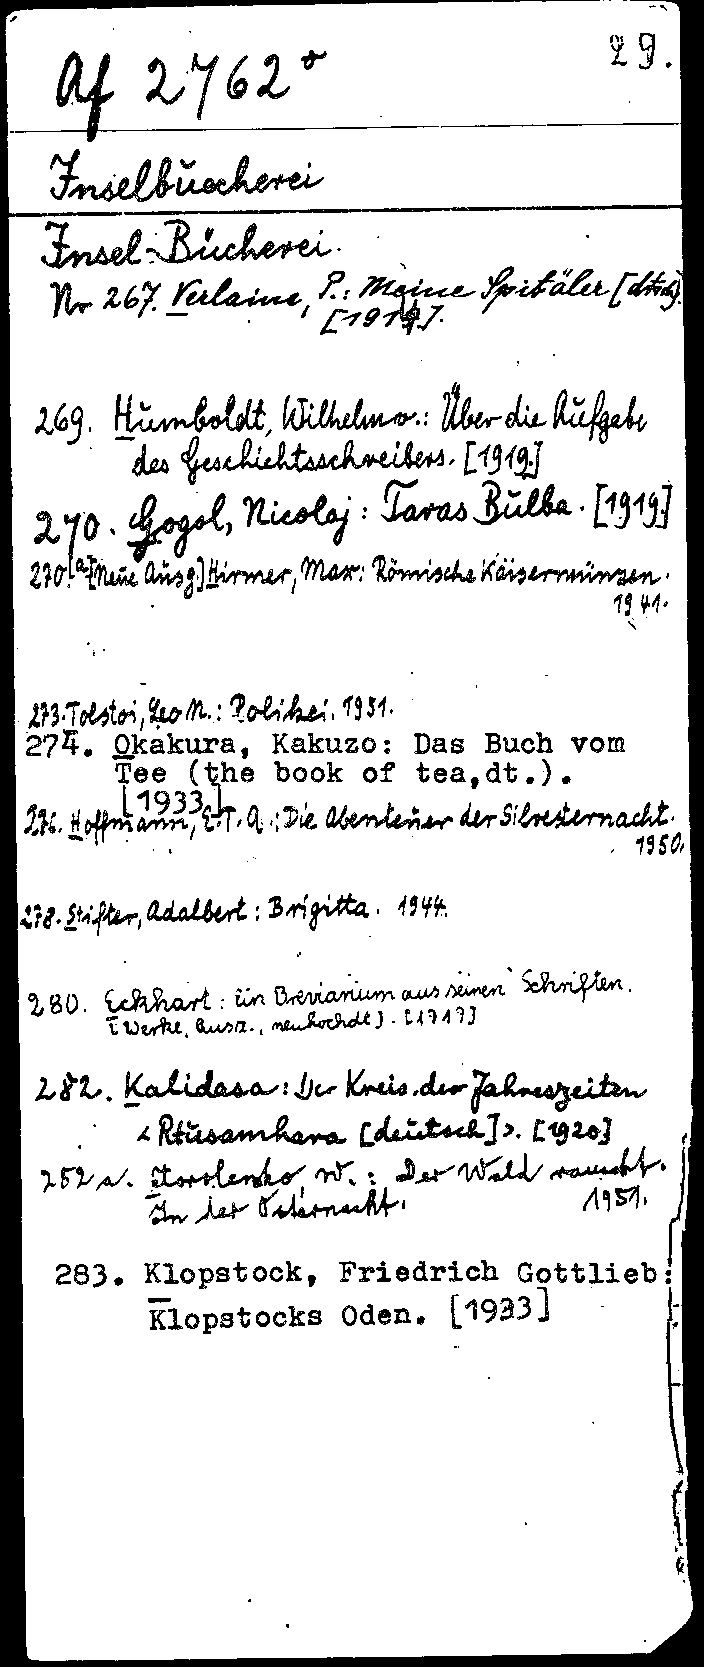 29.
Af 2762°
Inselbuecherei
Insel-Bücherei.
Nr 267. Verlaine, P.: Meine Spitäler [dtsch].
[1919].
269. Humboldt, Wilhelm v.: Über die Aufgabe
des Geschichtsschreibers. [1919.]
270. Gogol, Nicolaj: Taras Bulba. [1919.]
270.[a] [Neue Ausg.] Hirmer, Max: Römische Kaisermünzen.
1941.
273. Tolstoi, Leo N.: Polikei. 1951.
274. Okakura, Kakuzo: Das Buch vom
Tee (the book of tea,dt.).
[1933]
276. Hoffmann, E.T.A.: Die Abenteuer der Silvesternacht.
1950.
278. Stifter, Adalbert: Brigitta. 1944.
280. Eckhart: Ein Brevianium aus seinen Schriften.
[Werke, Ausz., neuhochdt]. [1919]
282. Kalidasa: Der Kreis der Jahreszeiten
<Rtusamhara [deutsch]>. [1920]
282 a. Korolenko, W.: Der Wald rauscht.
In der Osternacht. 1951.
283. Klopstock, Friedrich Gottlieb:
Klopstocks Oden. [1933]